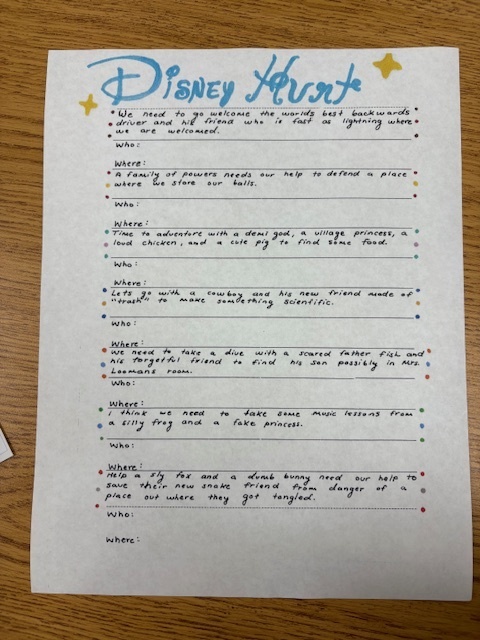 Disney Hunt
We need to go welcome the worlds best backwards
driver and his friend who is fast as lightning where
we are welcomed.
Who:
Where:
A family of powers needs our help to defend a place
where we store our balls.
Who:
Where:
Time to adventure with a demi god, a village princess, a
loud chicken, and a cute pig to find some food.
Who:
Where:
Lets go with a cowboy and his new friend made of
"trash" to make something scientific.
Who:
Where:
We need to take a dive with a scared father fish and
his forgetful friend to find his son possibly in Mrs.
Loomans room.
Who:
Where:
I think we need to take some music lessons from
a silly frog and a fake princess.
Who:
Where:
Help a sly fox and a dumb bunny need our help to
save their new snake friend from danger of a
place out where they got tangled.
Who:
Where: